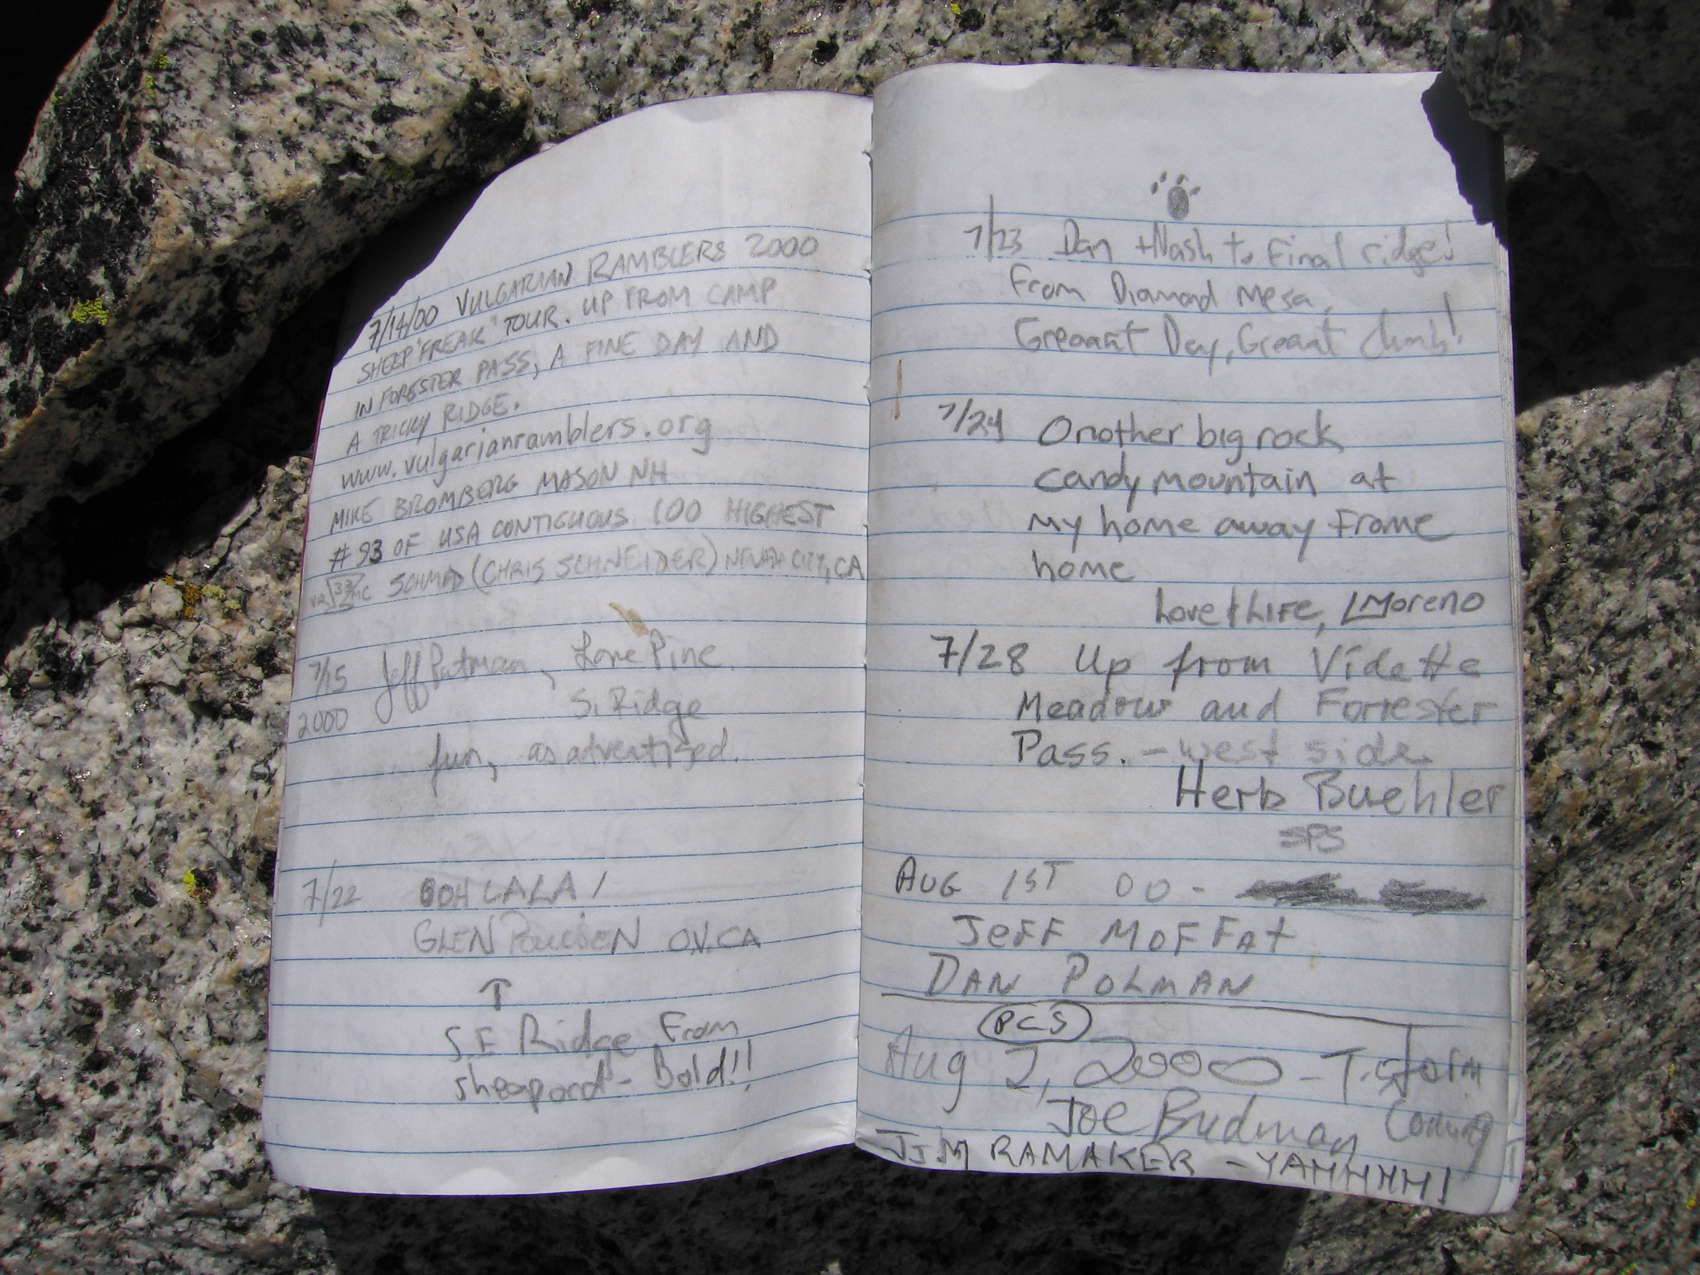 7/14/00 VULGARIAN RAMBLERS 2000
SHEEP "FREAK" TOUR. UP FROM CAMP
IN FORESTER PASS, A FINE DAY AND
A TRICKY RIDGE.
www.vulgarianramblers.org
MIKE BROMBERG MASON NH
#93 OF USA CONTIGUOUS 100 HIGHEST
SCHMED (CHRIS SCHNEIDER) NEVADA CITY, CA
7/15 Jeff Putman, Lone Pine
2000 S. Ridge
fun, as advertized.
7/22 OOH LALA!
GLEN POULSEN O.V. CA
↑
S.E Ridge From
sheapard - Bold!!
7/23 Dan + Nash to Final ridge!
From Diamond Mesa,
Greaaat Day, Greaat climb!
7/24 Onother big rock
candy mountain at
my home away Frome
home
Love & Life, LMoreno
7/28 Up from Vidette
Meadow and Forrester
Pass. - west side
Herb Buehler
SPS
AUG 1ST 00 -
JEFF MOFFAt
DAN POLMAN
PCS
Aug 2, 2000 - T-storm
Coming
Joe Budman
JIM RAMAKER - YAHHHH!